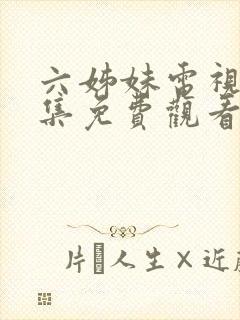 六姊妹電視
集免費觀看
片 人生×近